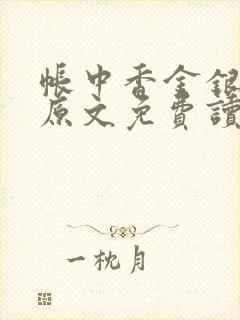 帳中香金銀
原文免費讀
一枕月